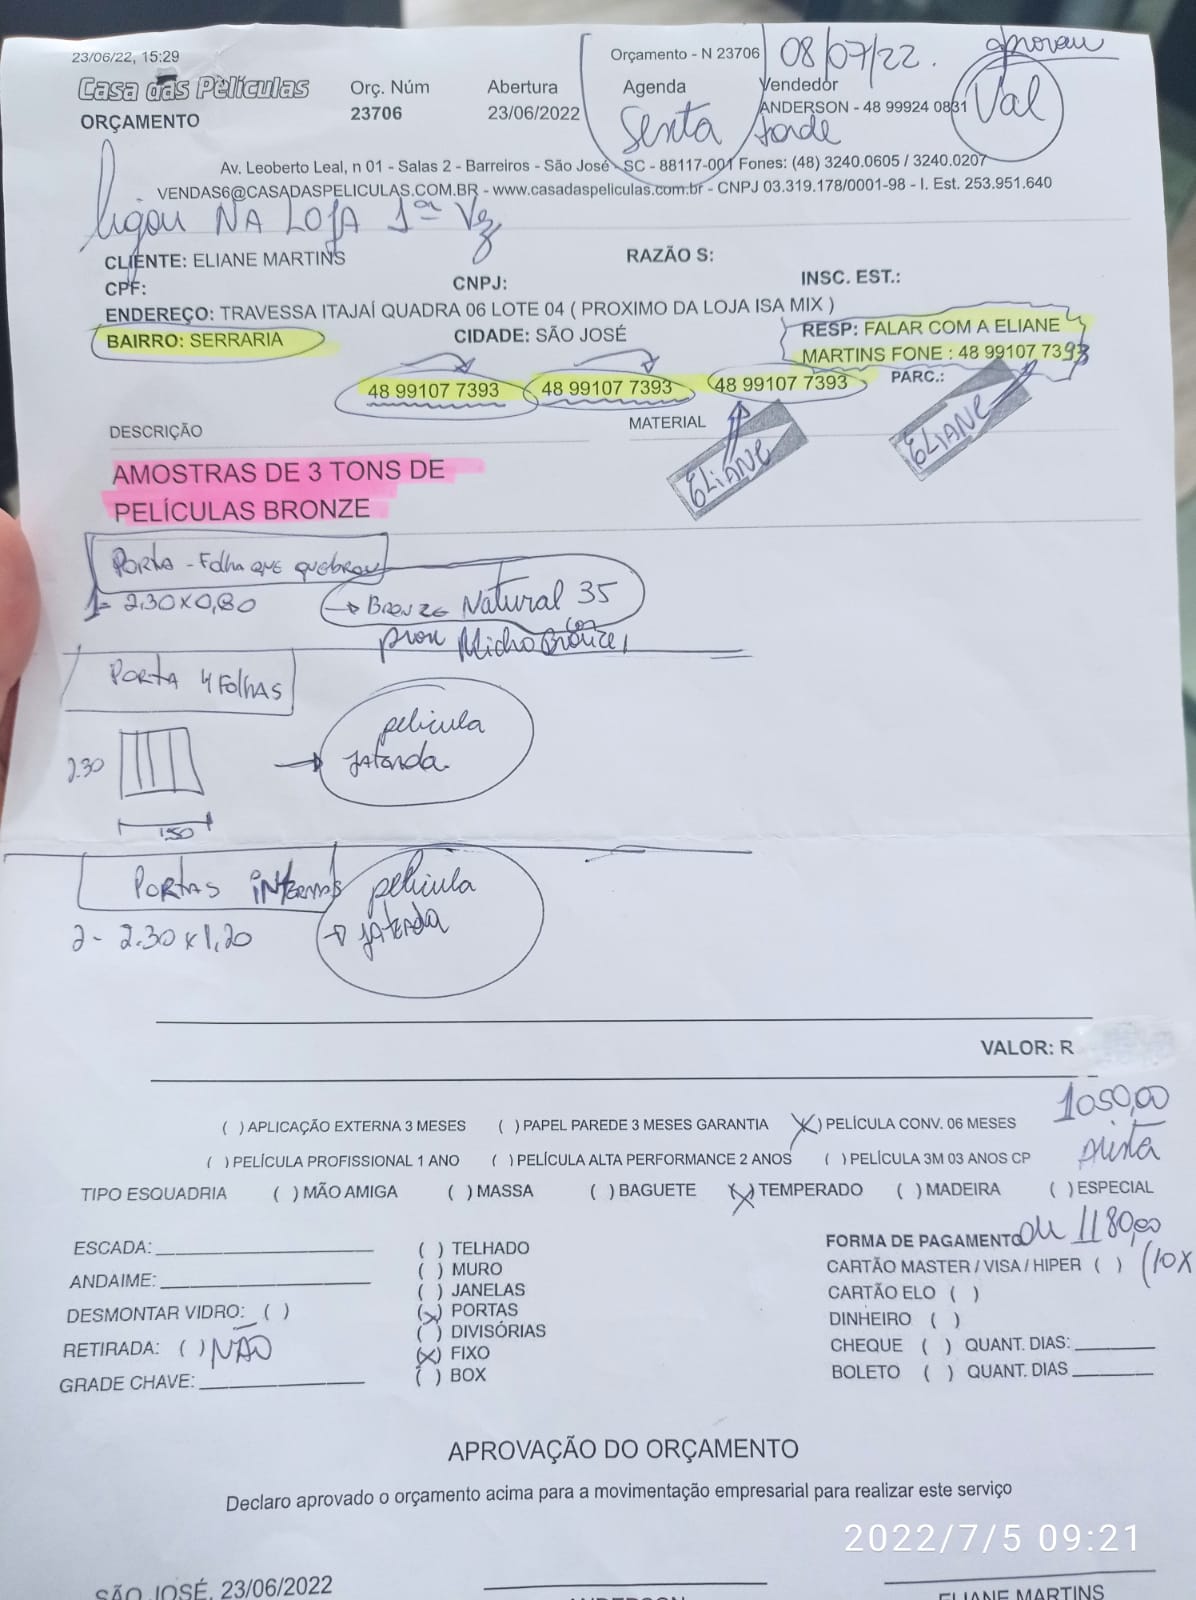 23/06/22, 15:29
Orçamento - N 23706
08/07/22.
Casa das Películas
Orç. Núm
Abertura
Agenda
Vendedor
Val
ORÇAMENTO
23706
23/06/2022
Sexta
ANDERSON - 48 99924 0831
tarde
Av. Leoberto Leal, n 01 - Salas 2 - Barreiros - São José - SC - 88117-001 Fones: (48) 3240.0605 / 3240.0207
VENDAS6@CASADASPELICULAS.COM.BR - www.casadaspeliculas.com.br - CNPJ 03.319.178/0001-98 - I. Est. 253.951.640
ligou NA LOJA 1ª Vez
CLIENTE: ELIANE MARTINS
RAZÃO S:
CPF:
CNPJ:
INSC. EST.:
ENDEREÇO: TRAVESSA ITAJAÍ QUADRA 06 LOTE 04 ( PROXIMO DA LOJA ISA MIX )
BAIRRO: SERRARIA
CIDADE: SÃO JOSÉ
RESP: FALAR COM A ELIANE
MARTINS FONE : 48 99107 7393
48 99107 7393
48 99107 7393
48 99107 7393
PARC.:
DESCRIÇÃO
MATERIAL
ELIANE
ELIANE
AMOSTRAS DE 3 TONS DE
PELÍCULAS BRONZE
PORTA - Folha QUE quebrou
1- 2.30x0,80
→ BRONZE Natural 35
PORTA 4 Folhas
pelicula
jateada.
2.30
1.50
PORTAS internas
pelicula
jateada
2 - 2.30 x 1,20
VALOR: R
1050,00
( ) APLICAÇÃO EXTERNA 3 MESES
( ) PAPEL PAREDE 3 MESES GARANTIA
(X) PELÍCULA CONV. 06 MESES
( ) PELÍCULA PROFISSIONAL 1 ANO
( ) PELÍCULA ALTA PERFORMANCE 2 ANOS
( ) PELÍCULA 3M 03 ANOS CP
TIPO ESQUADRIA
( ) MÃO AMIGA
( ) MASSA
( ) BAGUETE
(X) TEMPERADO
( ) MADEIRA
( ) ESPECIAL
ESCADA:
( ) TELHADO
FORMA DE PAGAMENTO
ou 1180,00
( ) MURO
CARTÃO MASTER / VISA / HIPER ( )
(10X
ANDAIME:
( ) JANELAS
CARTÃO ELO ( )
DESMONTAR VIDRO: ( )
(X) PORTAS
DINHEIRO ( )
( ) DIVISÓRIAS
RETIRADA: ( ) NÃO
(X) FIXO
CHEQUE ( ) QUANT. DIAS:
GRADE CHAVE:
( ) BOX
BOLETO ( ) QUANT. DIAS
APROVAÇÃO DO ORÇAMENTO
Declaro aprovado o orçamento acima para a movimentação empresarial para realizar este serviço
2022/7/5 09:21
SÃO JOSÉ, 23/06/2022
ANDERSON
ELIANE MARTINS